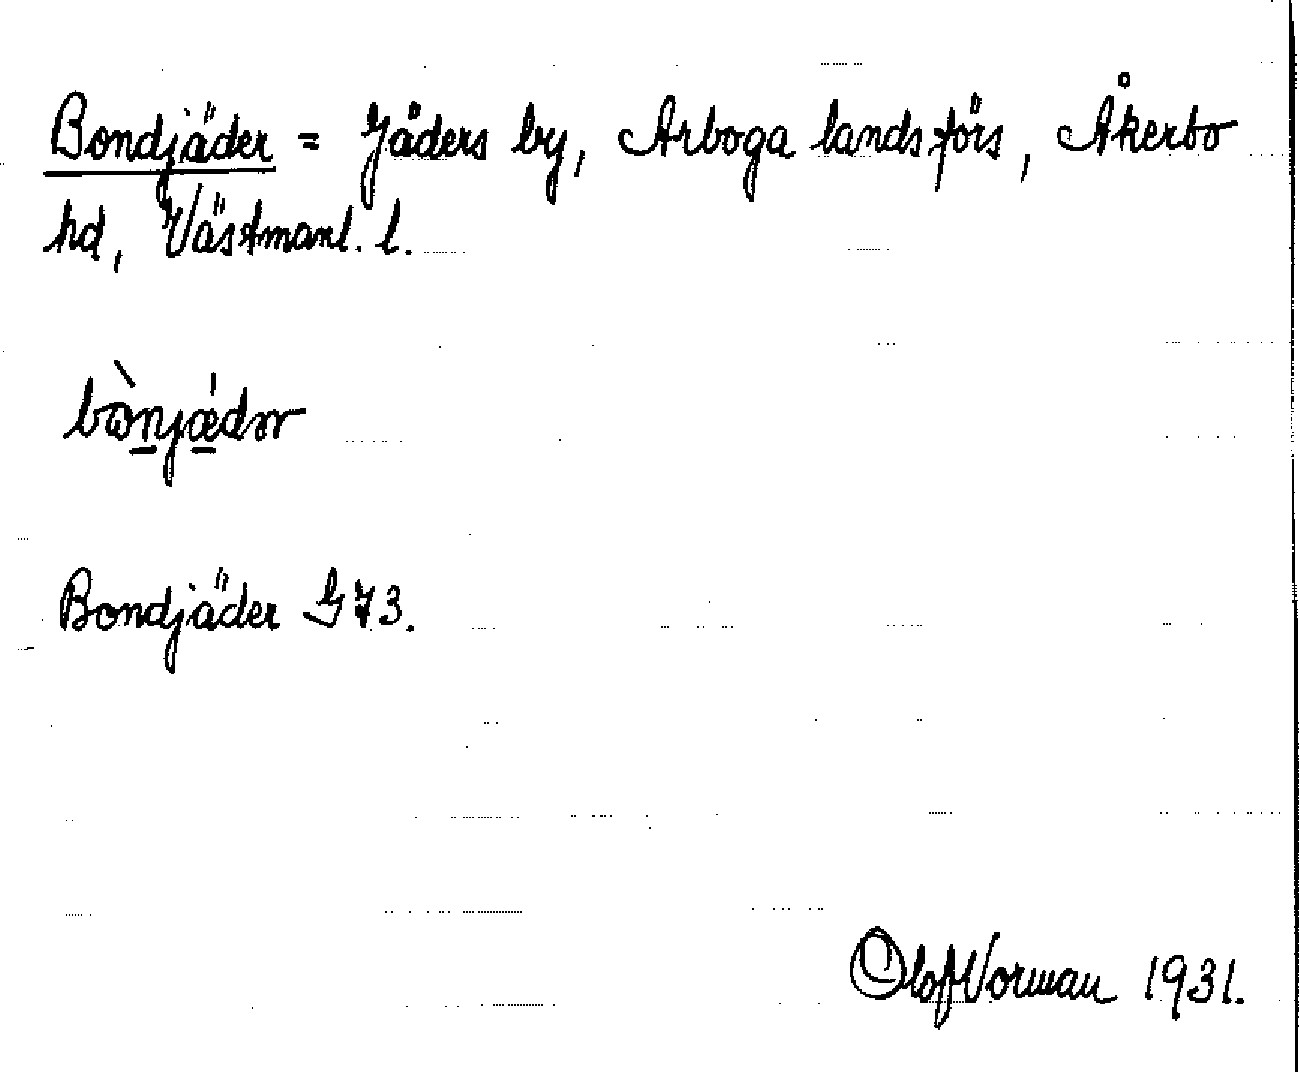 Bondjäder = Jäders by, Arboga landsförs, Åkerbo
hd, Västmanl. l.
bὼnjǽdər
Bondjäder G73.
Olof Vorman 1931.